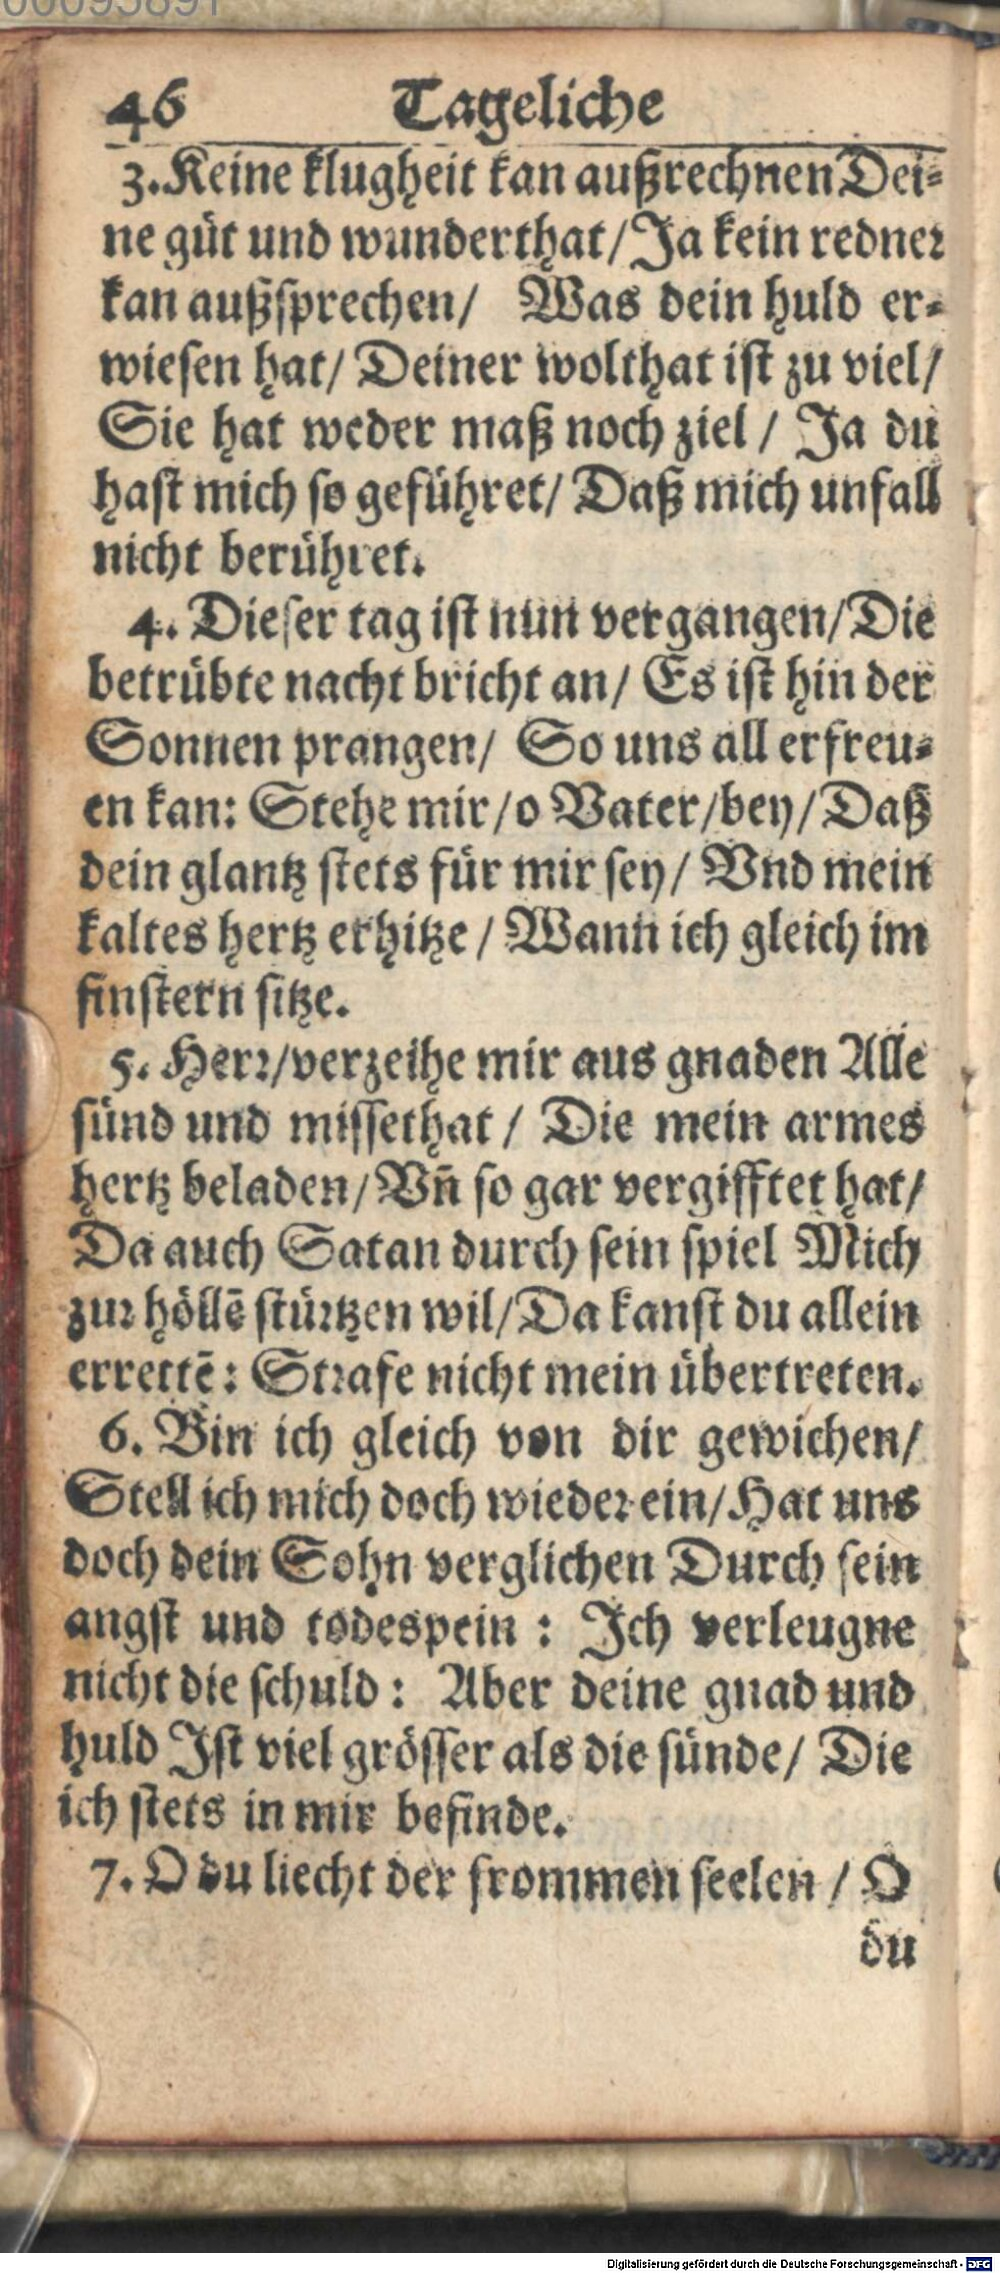 00095891
46 Tageliche
3. Keine klugheit kan außrechnen Dei-
ne güt und wunderthat/ Ja kein redner
kan außsprechen/ Was dein huld er-
wiesen hat/ Deiner wolthat ist zu viel/
Sie hat weder maß noch ziel / Ja du
hast mich so geführet/ Daß mich unfall
nicht berühret.
4. Dieser tag ist nun vergangen/ Die
betrübte nacht bricht an/ Es ist hin der
Sonnen prangen/ So uns all erfreu-
en kan: Stehe mir/ o Vater/ bey/ Daß
dein glantz stets für mir sey/ Vnd mein
kaltes hertz erhitze / Wann ich gleich im
finstern sitze.
5. Herr/ verzeihe mir aus gnaden Alle
sünd und missethat / Die mein armes
hertz beladen/ Vñ so gar vergifftet hat/
Da auch Satan durch sein spiel Mich
zur höllē stürtzen wil/ Da kanst du allein
errettē: Strafe nicht mein übertreten.
6. Bin ich gleich von dir gewichen/
Stell ich mich doch wieder ein/ Hat uns
doch dein Sohn verglichen Durch sein
angst und todespein : Ich verleugne
nicht die schuld : Aber deine gnad und
huld Ist viel grösser als die sünde/ Die
ich stets in mir befinde.
7. O du liecht der frommen seelen / O
du
Digitalisierung gefördert durch die Deutsche Forschungsgemeinschaft - DFG